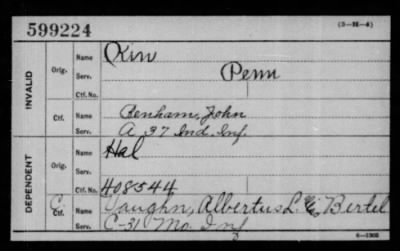 599224
(3-H-4)
INVALID
Orig.
Name
Serv.
Penn
Ctf. No.
Ctf.
Name Benham, John
Serv. A 37 Ind. Inf.
DEPENDENT
Orig.
Name Hal
Serv.
Ctf. No. 408544
C. Ctf.
Name Vaughn, Albertus L. Bertel
Serv. C-31 Mo. Inf